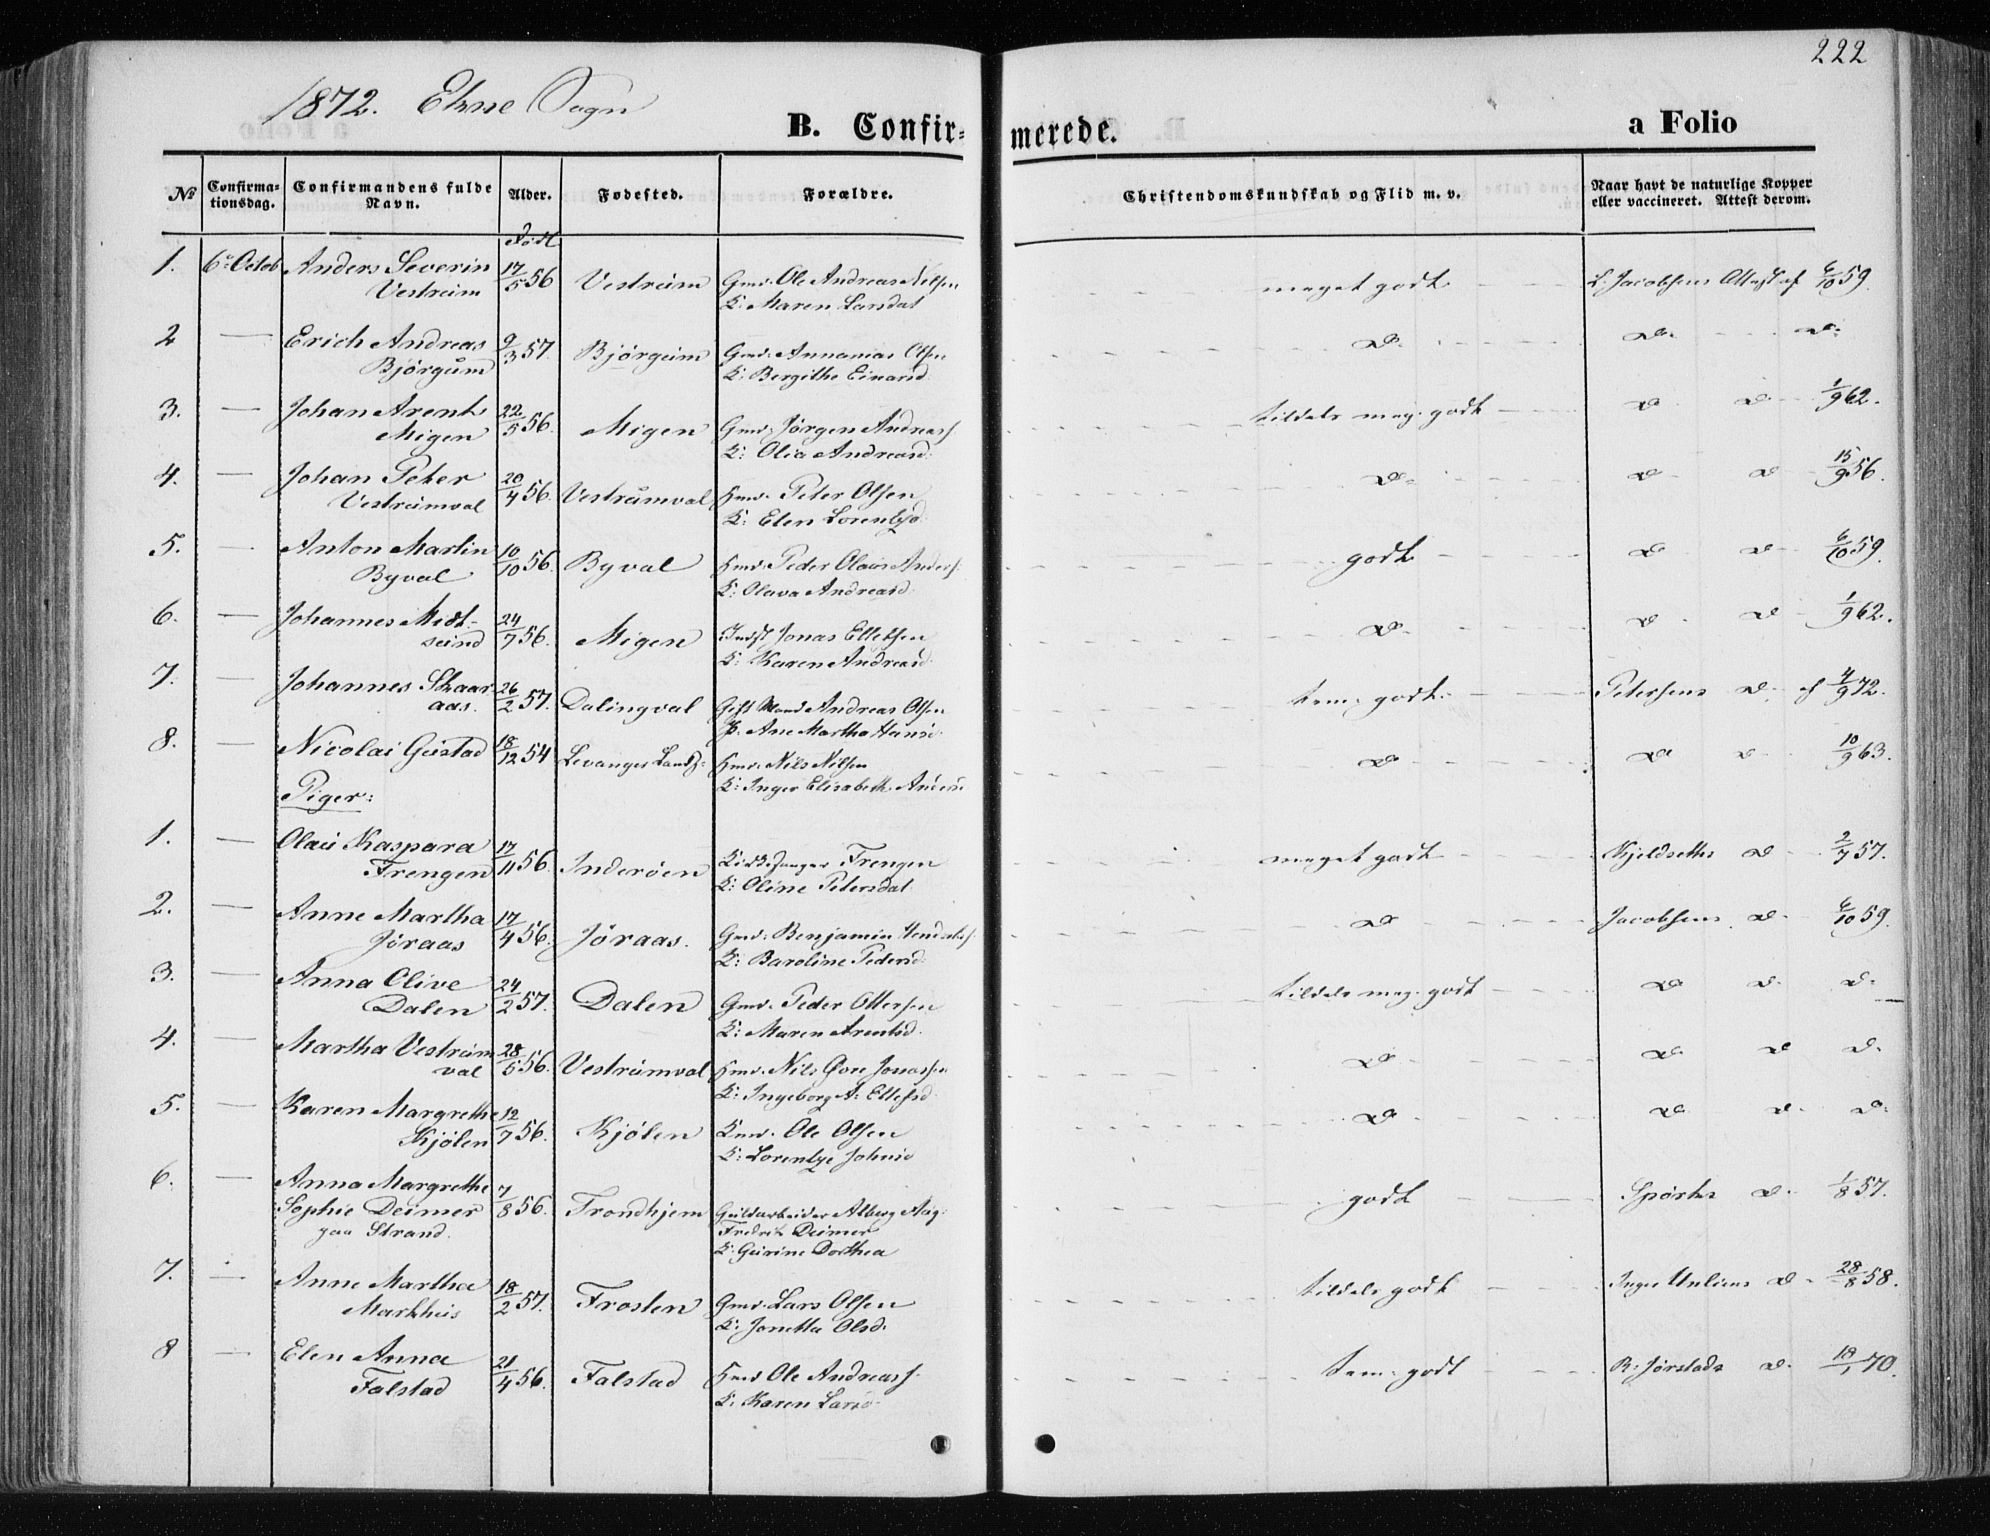 222
1872. Ekne Sogn
B. Confirmerede. a Folio
No Confirmationsdag. Confirmandens fulde Navn. Alder. Fødested. Forældre. Christendomskundskab og Flid m. v. Naar havt de naturlige Kopper eller vaccineret. Attest derom.
Født
1. 6te Octob Anders Severin 17/5 56 Vestrum Gmd. Ole Andreas Nilsen meget godt L. Jacobsens Attest af 6/10 59.
Vestrum K: Maren Larsdat
2 — Erich Andreas 9/3 57. Bjørgum Gmd. Annanias Olsen do do do
Bjørgum K: Bergithe Einarsd.
3. — Johan Arent 22/5 56. Migen Gmd. Jørgen Andreass. tildels meg. godt do do 1/9 62.
Migen K: Olia Andreasd.
4. — Johan Peter 20/4 56. Vestrumval Hmd. Peter Olsen do do do 15/9 56.
Vestrumval K: Elen Lorentsd.
5. — Anton Martin 10/10 56. Byval Hmd. Peder Olaus Anders. godt do do 6/10 59.
Byval K: Olava Andreasd.
6. — Johannes Midt- 24/7 56. Migen Indst Jonas Ellefsen do do do 1/9 62.
sund K: Karen Andreasd.
7. — Johannes Skaar- 26/2 57. Dalingval Gift Mand Andreas Olsen tem. godt. Petersens do af 4/9 72.
aas. P. Ane Martha Hansd.
8. — Nicolai Gustad 18/12 54 Levanger Lands: Hmd. Nils Nilsen do do do 10/9 63.
K: Inger Elisabeth Andersd.
Piger:
1. — Olau Kaspara 17/11 56. Inderøen Kirkesanger Frengen meget godt Kjeldseths do 2/7 57.
Frengen K: Oline Petersdat.
2. — Anne Martha 17/4 56. Jøraas. Gmd. Benjamin do Jacobsens do 6/10 59.
Jøraas K: Baroline Pedersd.
3. — Anna Olive 24/2 57. Dalen Gmd. Peder Ottersen tildels meg. godt do do do
Dalen K: Maren Arentsd.
4. — Martha Vestrum 28/5 56. Vestrumval Hmd. Nils Ove Jonassen do do do do
val K: Ingeborg A. Ellefsd.
5. — Karen Margrethe 12/7 56. Kjølen Hmd. Ole Olsen do do do do
Kjølen K: Lorentze Johnsd
6. — Anna Margrethe 7/8 56. Trondhjem Guldarbeider Alberg Aug: godt Spørks do 1/8 57.
Sophie Deimer Fredrik Deimer
paa Strand. K. Gurine Dorthea
7. — Anne Martha 18/2 57. Frosten Gmd. Lars Olsen tildels godt do 28/8 58.
Markhus K: Jonetta Olsd.
8 — Elen Anna 21/4 56. Falstad Hmd Ole Andreass. tem. godt R. Jørstads do 18/1 70.
Falstad K. Karen Larsd.